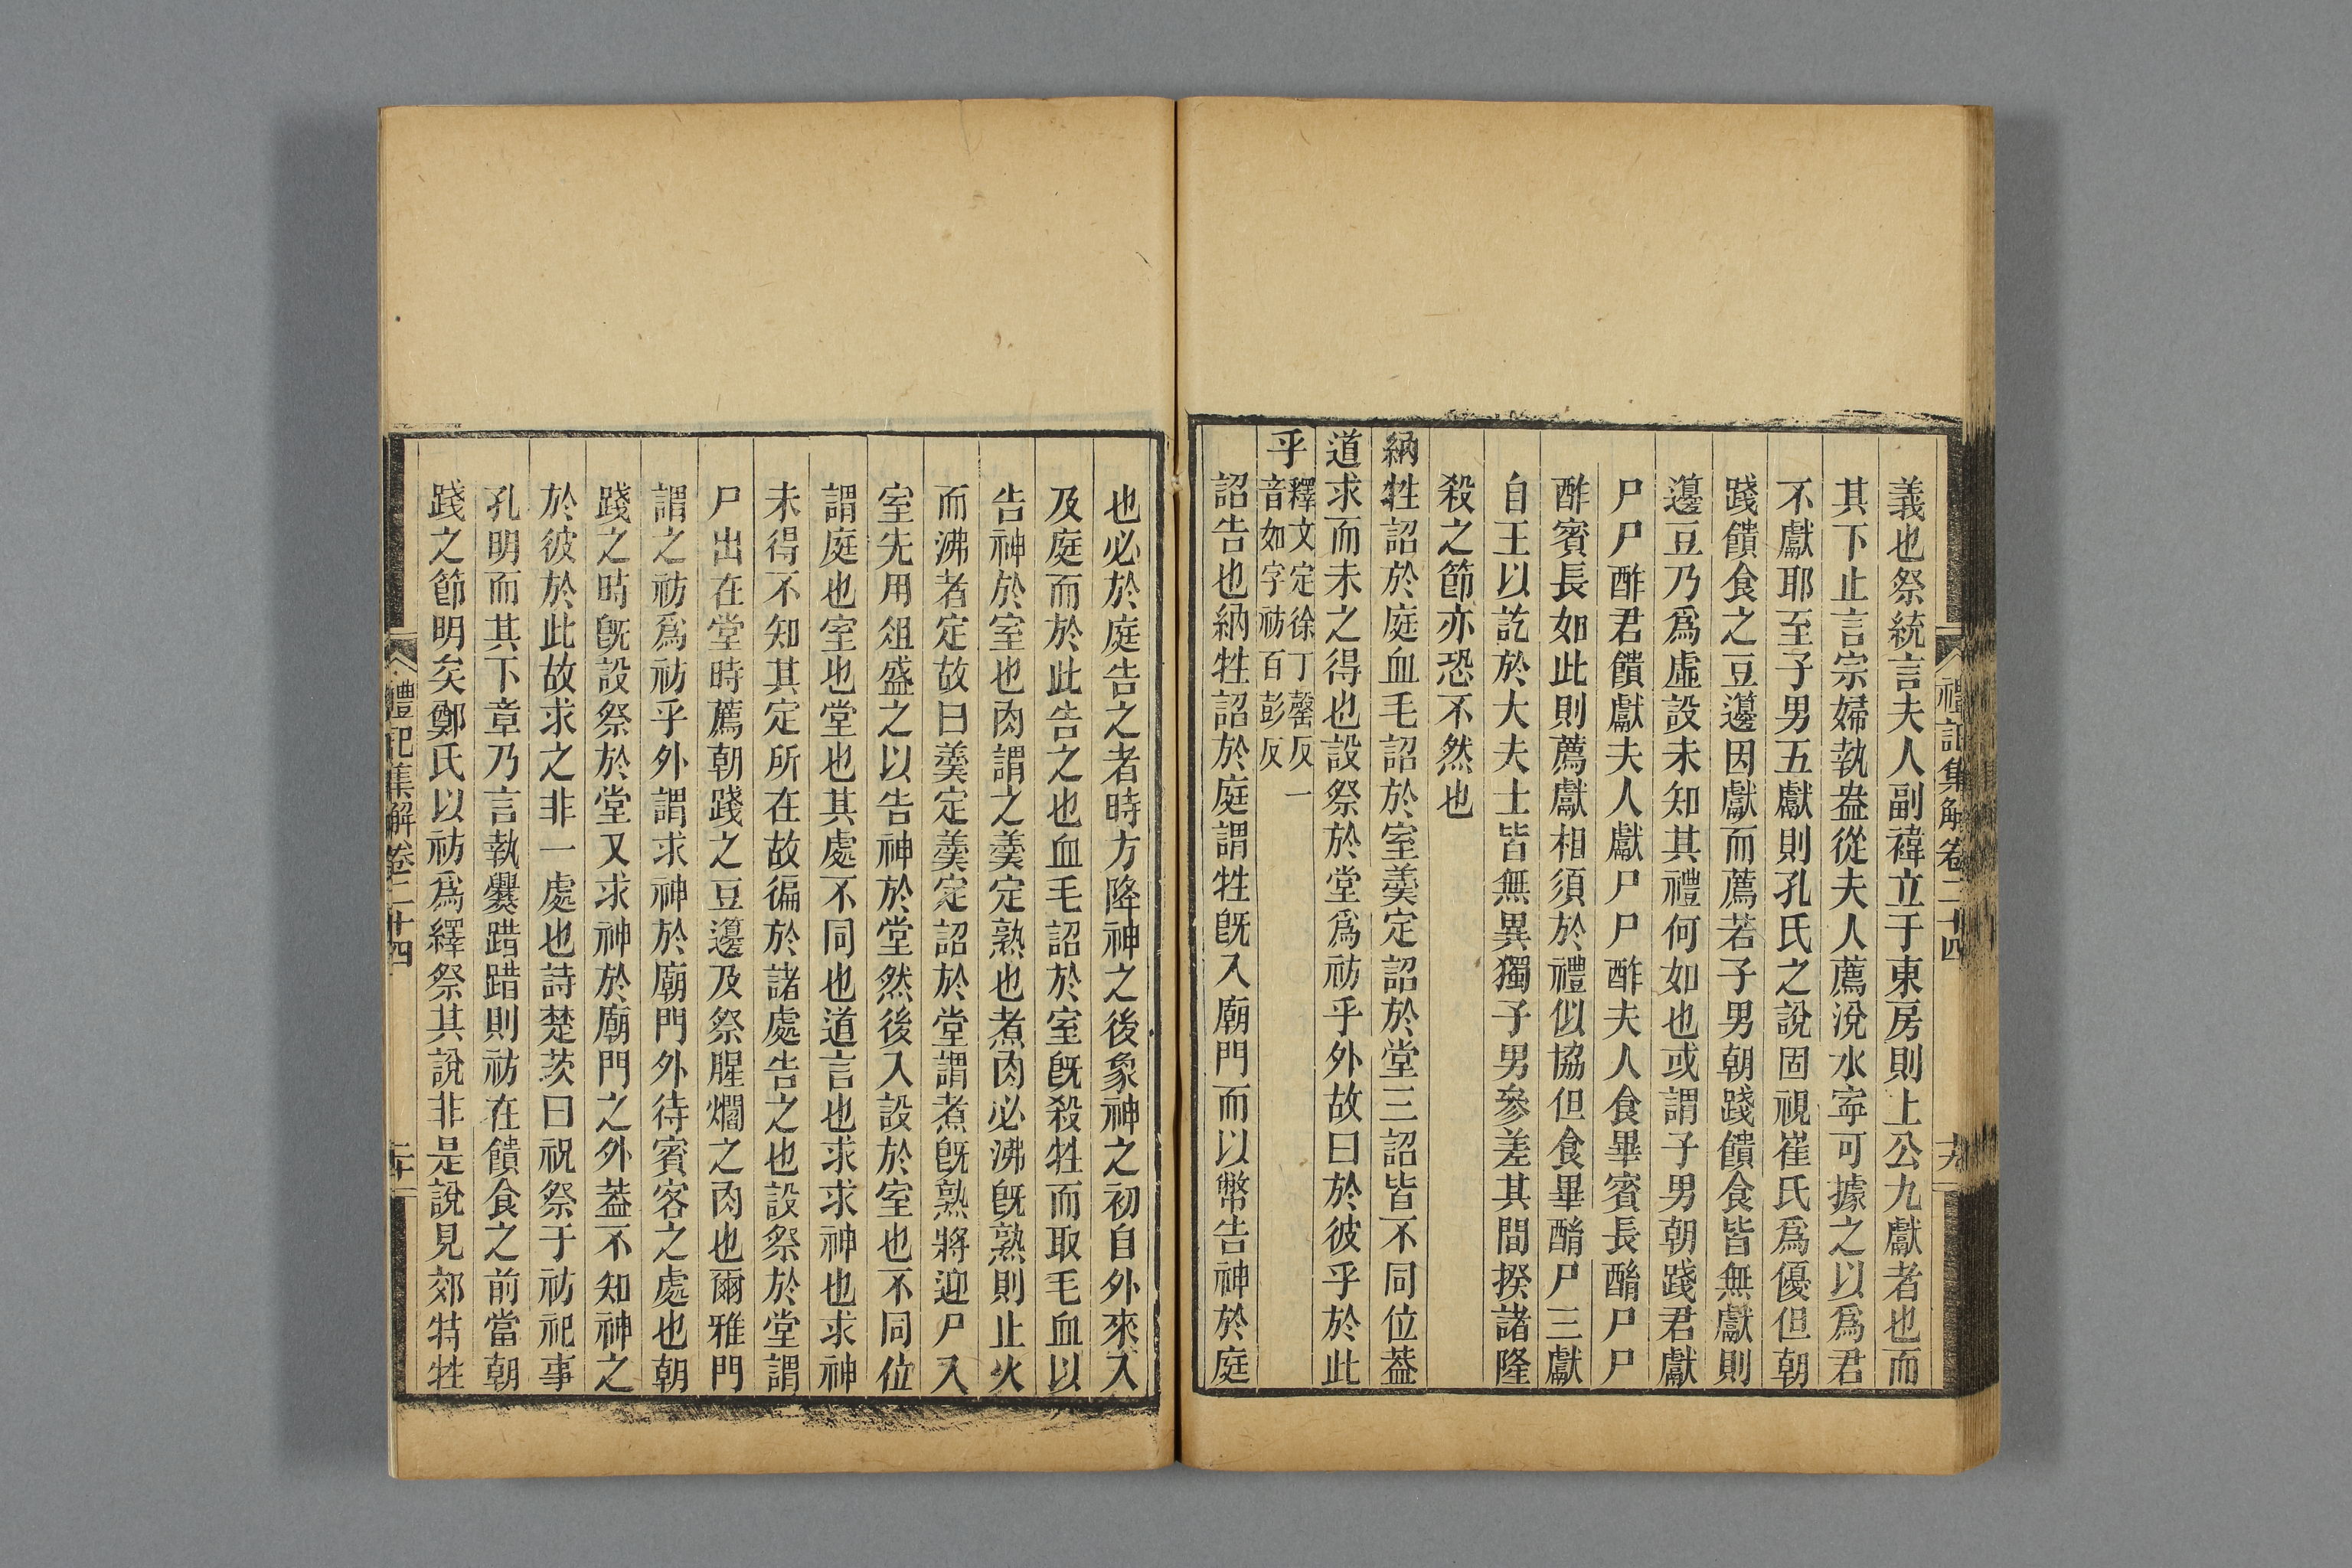 禮記集解卷二十四
十九
義也祭統言夫人副褘立于東房則上公九獻者也而
其下止言宗婦執盎從夫人薦涗水寧可據之以爲君
不獻耶至子男五獻則孔氏之說固視崔氏爲優但朝
踐饋食之豆籩因獻而薦若子男朝踐饋食皆無獻則
籩豆乃爲虛設未知其禮何如也或謂子男朝踐君獻
尸尸酢君饋獻夫人獻尸尸酢夫人食畢賓長酳尸尸
酢賓長如此則薦獻相須於禮似協但食畢酳尸三獻
自王以訖於大夫士皆無異獨子男參差其間揆諸隆
殺之節亦恐不然也
納牲詔於庭血毛詔於室羹定詔於堂三詔皆不同位葢
道求而未之得也設祭於堂爲祊乎外故曰於彼乎於此
乎釋文定徐丁罄反一
音如字祊百彭反
詔告也納牲詔於庭謂牲旣入廟門而以幣告神於庭
也必於庭告之者時方降神之後象神之初自外來入
及庭而於此告之也血毛詔於室旣殺牲而取毛血以
告神於室也肉謂之羹定熟也煮肉必沸旣熟則止火
而沸者定故曰羹定羹定詔於堂謂煮旣熟將迎尸入
室先用俎盛之以告神於堂然後入設於室也不同位
謂庭也室也堂也其處不同也道言也求求神也求神
未得不知其定所在故徧於諸處告之也設祭於堂謂
尸出在堂時薦朝踐之豆籩及祭腥爓之肉也爾雅門
謂之祊爲祊乎外謂求神於廟門外待賓客之處也朝
踐之時旣設祭於堂又求神於廟門之外葢不知神之
於彼於此故求之非一處也詩楚茨曰祝祭于祊祀事
孔明而其下章乃言執爨踖踖則祊在饋食之前當朝
踐之節明矣鄭氏以祊爲繹祭其說非是說見郊特牲
禮記集解卷二十四
二十